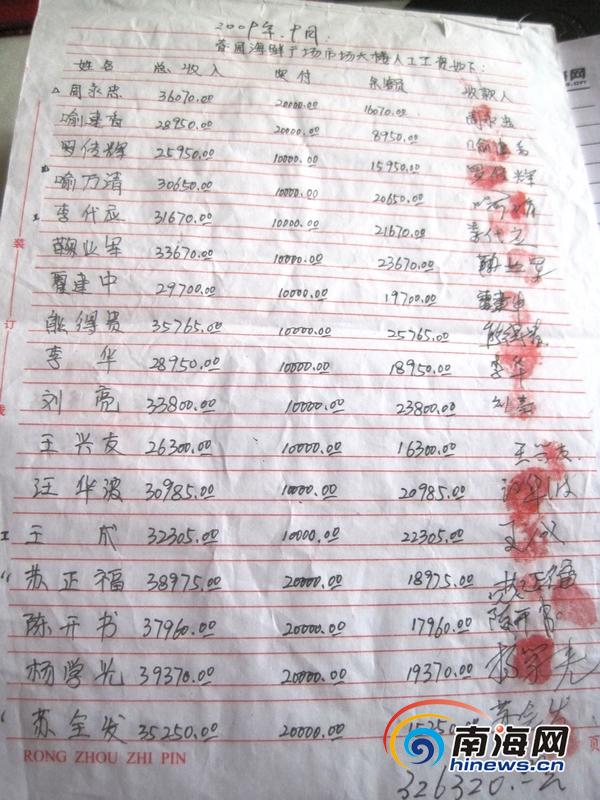 2009年.十月.
海鲜广场市场大楼人工工资如下:
姓名 总收入 实付 余额 收款人
周永忠 36070.00 20000.00 16070.00 周永忠
喻建香 28950.00 20000.00 8950.00
罗传辉 25950.00 10000.00 15950.00 罗传辉
喻万清 30650.00 10000.00 20650.00
李代丞 31670.00 10000.00 21670.00 李代
业军 33670.00 10000.00 23670.00
瞿建中 29700.00 10000.00 19700.00
熊得贵 35765.00 10000.00 25765.00 熊得贵
李华 28950.00 10000.00 18950.00 李华
刘亮 33800.00 10000.00 23800.00 刘亮
王兴友 26300.00 10000.00 16300.00 王兴友
汪华波 30985.00 10000.00 20985.00 汪华波
王成 32305.00 10000.00 22305.00 王成
苏正福 38975.00 20000.00 18975.00 苏正福
陈开书 37960.00 20000.00 17960.00 陈开书
杨学光 39370.00 20000.00 19370.00 杨学光
苏全发 35250.00 20000.00 15250.00 苏全发
装
订
线
RONG ZHOU ZHI PIN
页
326320.
南海网
hinews.cn